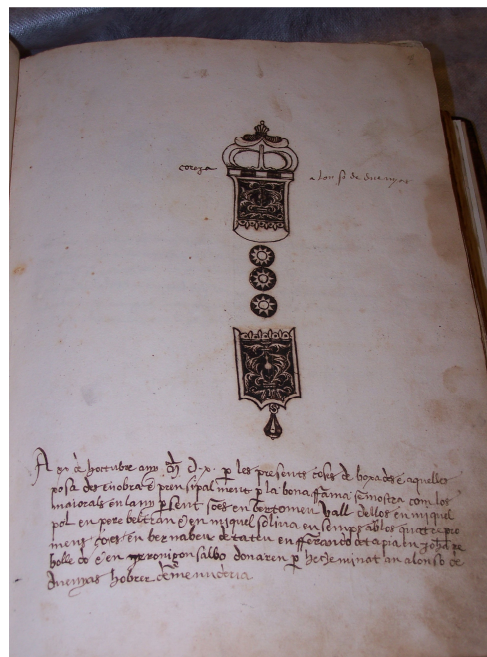 coreja
alonso de duenyas
A de hoctubre any D.x. per les presents coses de boxades e aquelles
posades en obra e prensipalment per la bona ffama semostra com los
maiorals en lany present son es en bertomeu vall dellos en miquel
pol en pere beltran e en miquel solina ensemps ab los quatre pro
mens so es en bernabeu de tateu en fferando de tapia en johan re
bolledo e en geronimo salbo donaren per hexseminat an alonso de
duenyas hobrer de menuderia